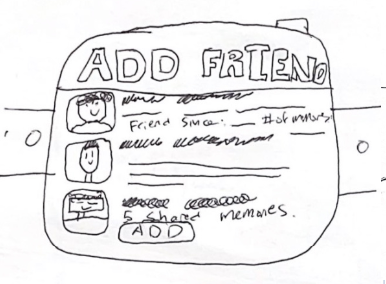 ADD FRIEND
Friend Since: # of memories
5 Shared memories.
ADD